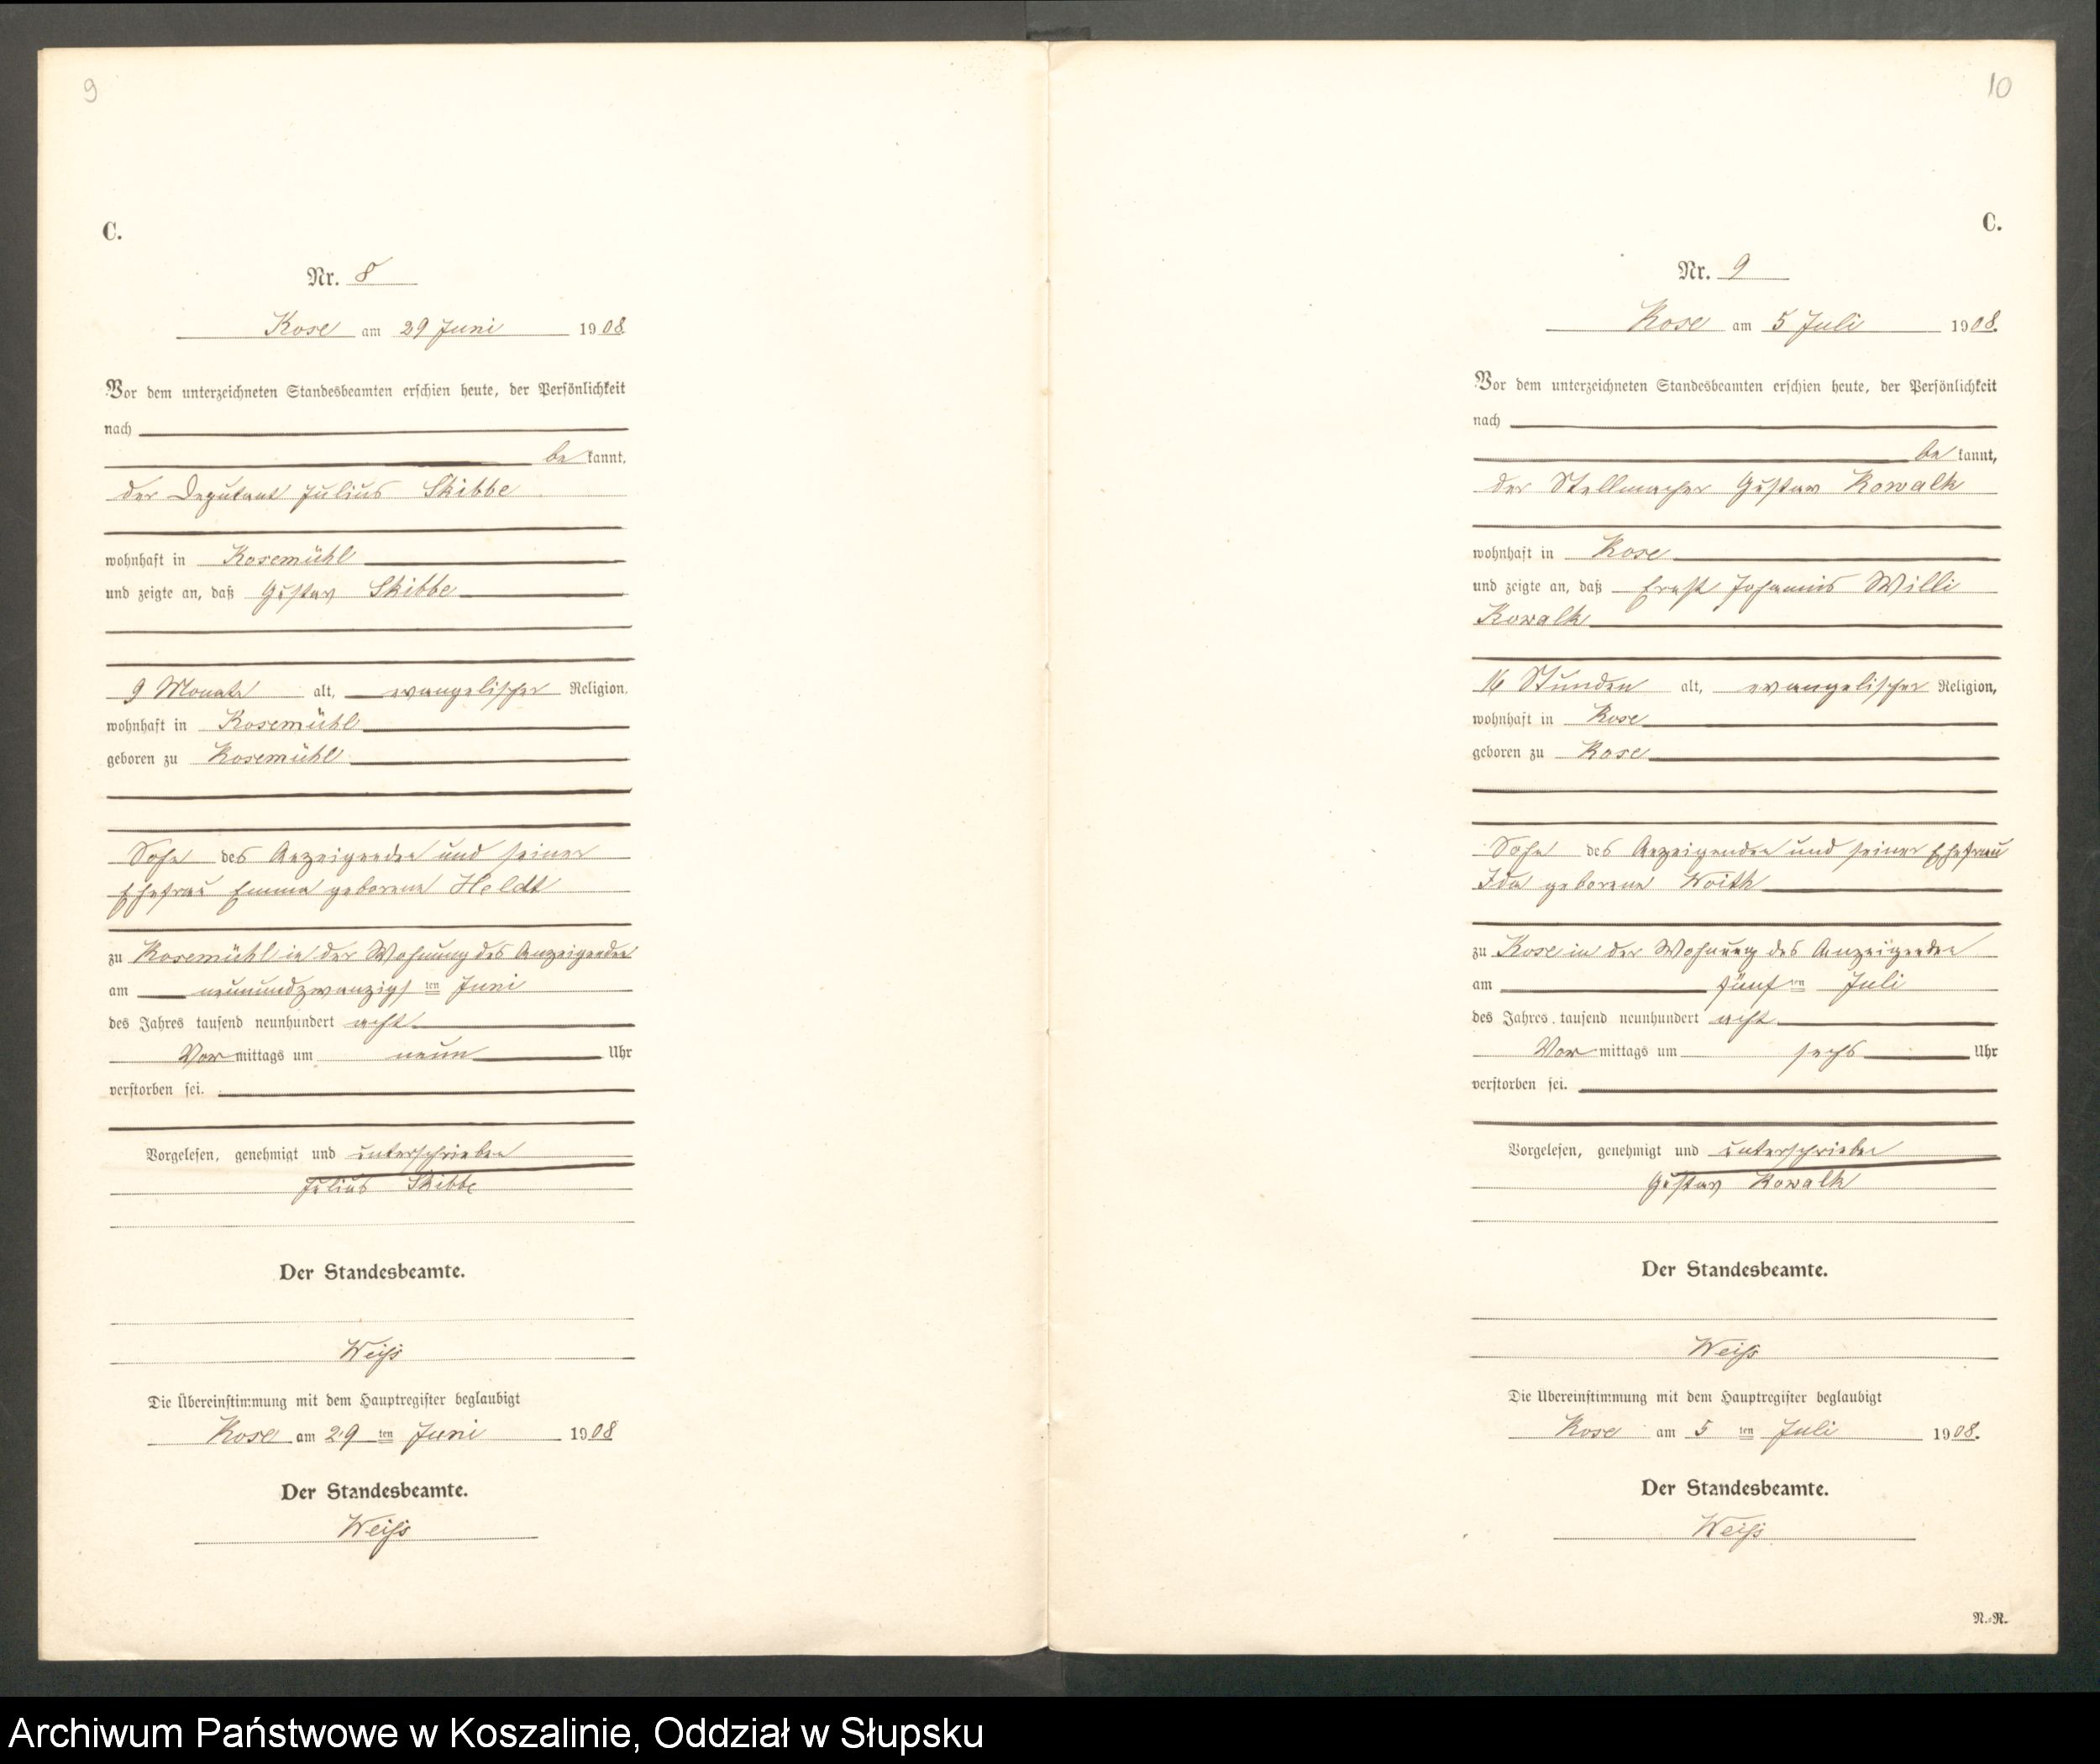 9
C.
Nr. 8
Kose am 29 Juni 1908
Vor dem unterzeichneten Standesbeamten erschien heute, der Persönlichkeit
nach
be kannt,
der Deputant Julius Skibbe
wohnhaft in Kosemühl
und zeigte an, daß Gustav Skibbe
9 Monate alt, evangelischer Religion,
wohnhaft in Kosemühl
geboren zu Kosemühl
Sohn des Anzeigenden und seiner
Ehefrau Emma geborene Heldt
zu Kosemühl in der Wohnung des Anzeigenden
am neunundzwanzigsten Juni
des Jahres tausend neunhundert acht
Vormittags um neun Uhr
verstorben sei.
Vorgelesen, genehmigt und unterschrieben
Julius Skibbe
Der Standesbeamte.
Weiß
Die Übereinstimmung mit dem Hauptregister beglaubigt
Kose am 29 ten Juni 1908
Der Standesbeamte.
Weiß
10
C.
Nr. 9
Kose am 5 Juli 1908.
Vor dem unterzeichneten Standesbeamten erschien heute, der Persönlichkeit
nach
be kannt,
der Stellmacher Gustav Kowalk
wohnhaft in Kose
und zeigte an, daß Ernst Johannes Willi
Kowalk
16 Stunden alt, evangelischer Religion,
wohnhaft in Kose
geboren zu Kose
Sohn des Anzeigenden und seiner Ehefrau
Ida geborene Woith
zu Kose in der Wohnung des Anzeigenden
am fünften Juli
des Jahres tausend neunhundert acht
Vormittags um sechs Uhr
verstorben sei.
Vorgelesen, genehmigt und unterschrieben
Gustav Kowalk
Der Standesbeamte.
Weiß
Die Übereinstimmung mit dem Hauptregister beglaubigt
Kose am 5 ten Juli 1908.
Der Standesbeamte.
Weiß
N.-R.
Archiwum Państwowe w Koszalinie, Oddział w Słupsku